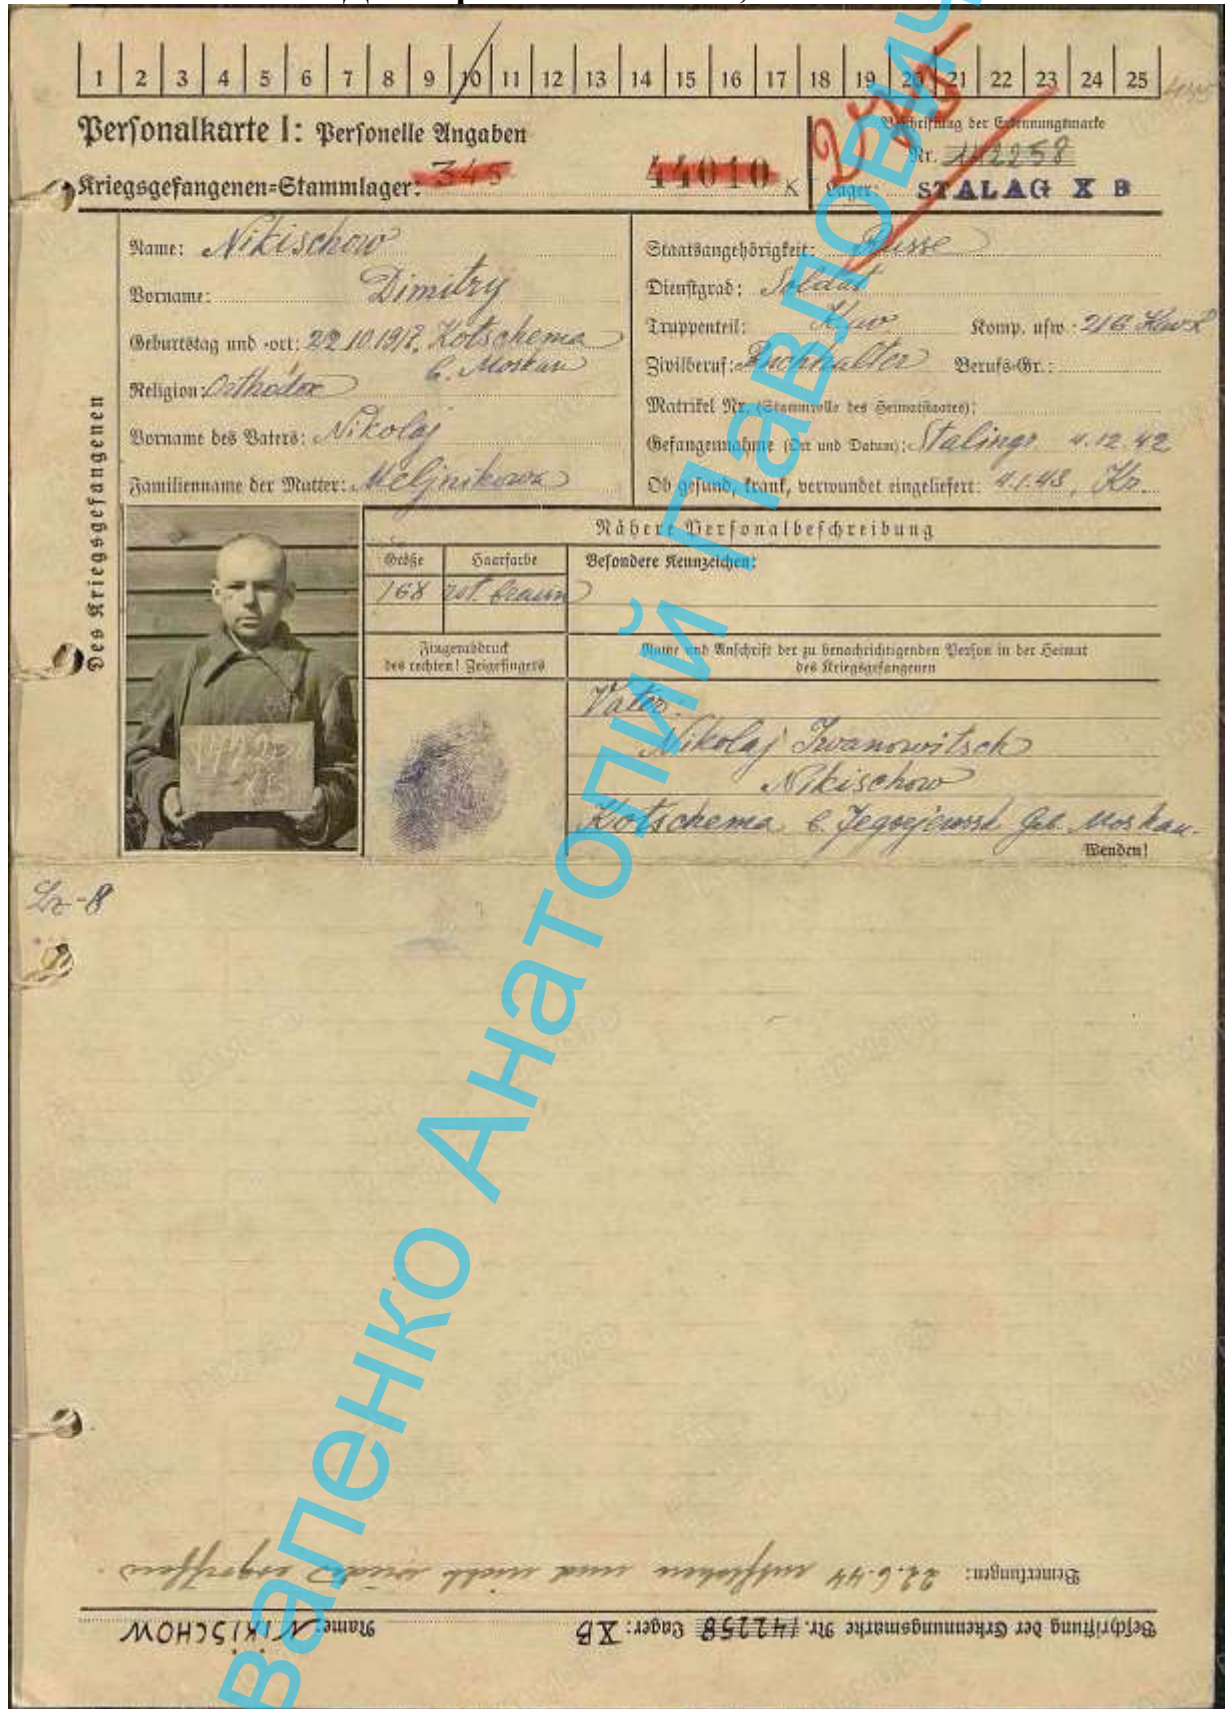 1 2 3 4 5 6 7 8 9 10 11 12 13 14 15 16 17 18 19 20 21 22 23 24 25
Personalkarte I: Personelle Angaben
Beschriftung der Erkennungsmarke
Nr. 142258
Kriegsgefangenen=Stammlager: 345 44010 K
Lager: STALAG X B
Des Kriegsgefangenen
Name: Nikischow
Vorname: Dimitry
Geburtstag und -ort: 22.10.1917, Kotschema
b. Moskau
Religion: Orthodox
Vorname des Vaters: Nikolaj
Familienname der Mutter: Meljnikowa
Staatsangehörigkeit: Russe
Dienstgrad: Soldat
Truppenteil: Komp. usw.: 216
Zivilberuf: Buchhalter Berufs-Gr.:
Matrikel Nr. (Stammrolle des Heimatstaates):
Gefangennahme (Ort und Datum): Stalingr. 4.12.42
Ob gesund, krank, verwundet eingeliefert: 4.1.43, Kr.
Nähere Personalbeschreibung
Größe Haarfarbe Besondere Kennzeichen:
168 rot. braun
Fingerabdruck
des rechten! Zeigefingers
Name und Anschrift der zu benachrichtigenden Person in der Heimat
des Kriegsgefangenen
Vater
Nikolaj Iwanowitsch
Nikischow
Kotschema b. Jegorjewssk Geb. Moskau.
Wenden!
Bemerkungen: 22.6.44 entflohen und nicht wieder ergriffen.
Beschriftung der Erkennungsmarke Nr. 142258 Lager: XB Name: NIKISCHOW
валенко Анатолий Павлович